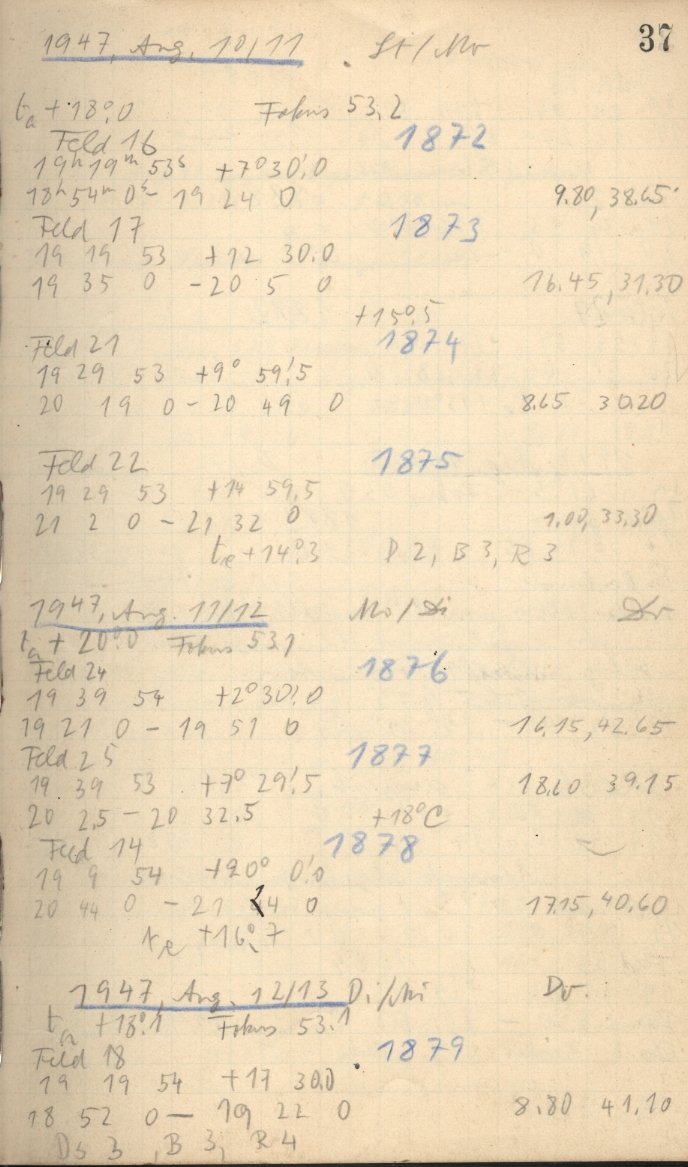 37
1947, Aug. 10/11 St/Mo
ta +18°.0 Fokus 53,2
Feld 16 1872
19h 19m 53s +7° 30'.0
18h 54m 0s - 19 24 0 9.80, 38.65
Feld 17 1873
19 19 53 +12 30.0
19 35 0 - 20 5 0 16.45, 31.30
+15°.5
Feld 21 1874
19 29 53 +9° 59'.5
20 19 0 - 20 49 0 8.65 30.20
Feld 22 1875
19 29 53 +14 59.5
21 2 0 - 21 32 0 1.00, 33.30
te +14°.3 D 2, B 3, R 3
1947, Aug. 11/12 Mo/Di Dr
ta + 20°.0 Fokus 53.1
Feld 24 1876
19 39 54 +2° 30'.0
19 21 0 - 19 51 0 16.15, 42.65
Feld 25 1877
19 39 53 +7° 29'.5 18.60 39.15
20 2.5 - 20 32.5 +18°C
Feld 14 1878
19 9 54 +20° 0'.0
20 44 0 - 21 14 0 17.15, 40.60
te +16°.7
1947, Aug. 12/13 Di/Mi Dr.
ta +18°.1 Fokus 53.1
Feld 18 1879
19 19 54 +17 30.0
18 52 0 - 19 22 0 8.80 41.10
Ds 3, B 3, R 4